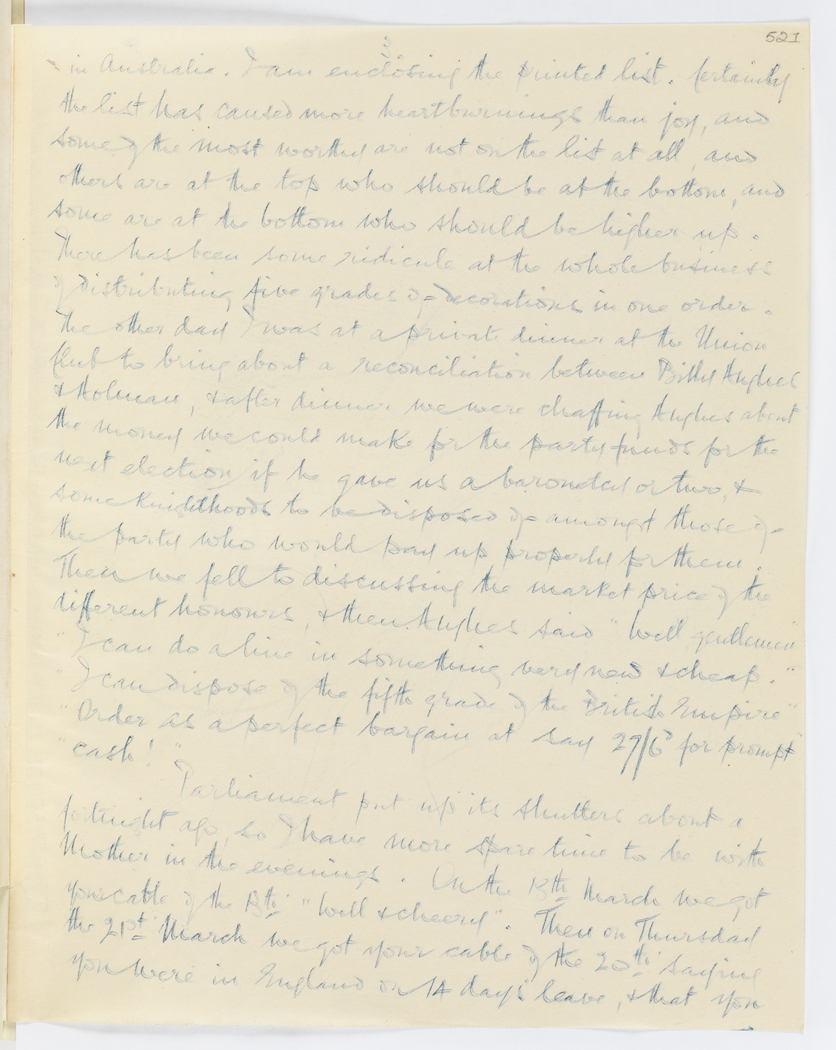 521
3
in Australia. I am enclosing the printed list. Certainly
the list has caused more heartburnings than joy, and
some of the most worthy are not on the list at all, and
others are at the top who should be at the bottom, and
some are at the bottom who should be higher up.
There has been some ridicule at the whole business
of distributing five grades of decorations in one order.
The other day I was at a private dinner at the Union
Club to bring about a reconciliation between Billy Hughes
& Holman, & after dinner we were chaffing Hughes about
the money we could make for the party funds for the
next election if he gave us a baronetcy or two, &
some Knighthoods to be disposed of amongst those of
the party who would pay up properly for them.
Then we fell to discussing the market price of the
different honours, & then Hughes said "Well, gentlemen"
"I can do a line in something very new & cheap."
"I can dispose of the fifth grade of the British Empire"
"Order as a perfect bargain at say 27/6d for prompt"
"cash!"
Parliament put up its shutters about a
fortnight ago, so I have more spare time to be with
Mother in the evenings. On the 15th March we got
your cable of the 13th "Well & cheery". Then on Thursday
the 21st March we got your cable of the 20th saying
you were in England on 14 days leave, & that you